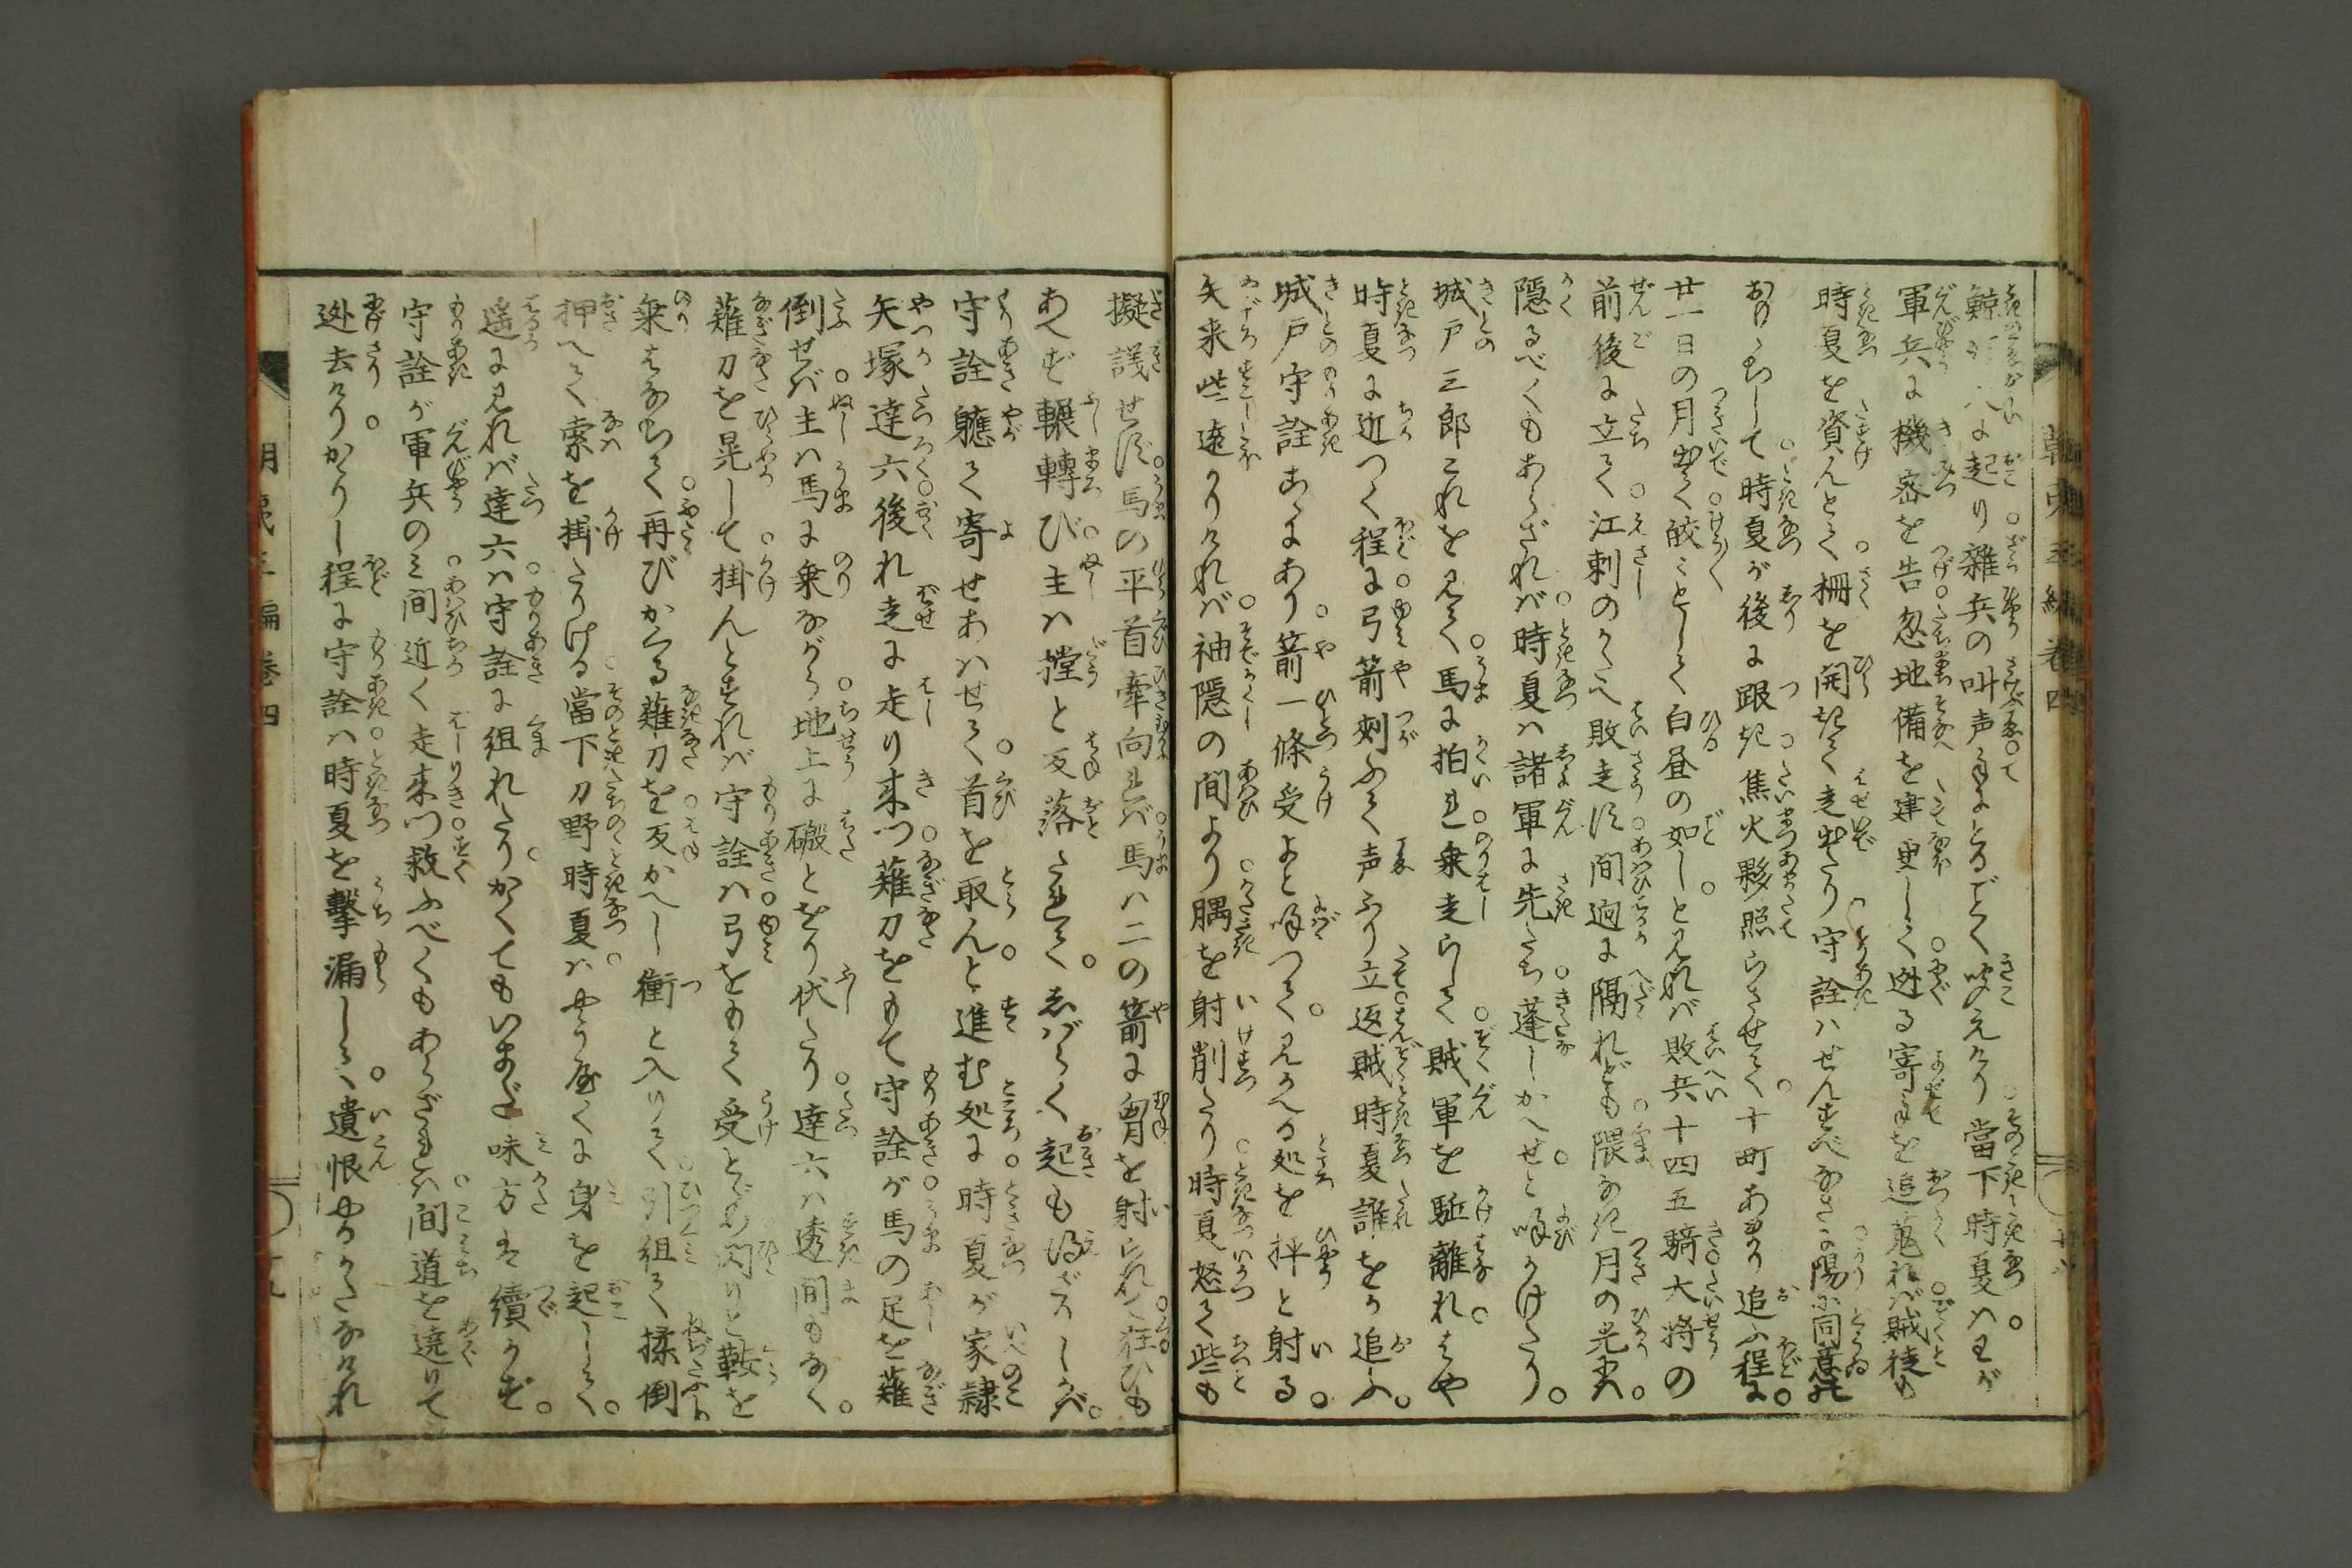 鯨波八に起り雑兵の叫声手にとるごとく吹えけり當下時夏ハわが
軍兵に機密を告忽地備を建更して迯る寄手を追蒐れバ賊徒も
時夏を資んとて柵を開きて走出たり守詮ハせんすべなさに陽に同意て
おのづからにして時夏が後に跟き焦火夥照らさせて十町あまり追ふ程に
廿一日の月出て皎々として白昼の如しと見れバ敗兵十四五騎大将の
前後に立て江刺のかたへ敗走す間迥に隔れども隈なき月の光爽
隠るべくもあらざれバ時夏ハ諸軍に先たち蓬しかへせと呼かけたり
城戸三郎これを見て馬に拍れ乗走らして賊軍を駈離れはや
時夏に近つく程に弓箭刺ふて声ふり立返賊時夏誰をか追ふ
城戸守詮こゝにあり箭一條受よと呼つて見かへる処を抨と射る
矢来些遠かりけれバ袖隠の間より髃を射削たり時夏怒て些も
擬議せず馬の平首牽向れバ馬ハ二の箭に胷を射られて狂ひも
あへず輾轉び主ハ撐と反落されてしばらく起も得ざりしかバ
守詮軈て寄せあハせて首を取んと進む処に時夏が家隷
矢塚達六後れ走に走り来つ薙刀をもて守詮が馬の足を薙
倒せバ主ハ馬に乗ながら地上に礑とをり伏たり達六ハ透間もなく
薙刀を晃して掛んとすれバ守詮ハ弓をもて受とめ閃りと鞍を
乗はなちて再びかゝる薙刀を反かへし衝と入りて引組て揉倒
押へて索を掛たりける當下刀野時夏ハやう屋くに身を起して
遥に見れバ達六ハ守詮に組れたりかくてもいまだ味方は續かず
守詮が軍兵のミ間近く走来つ救ふべくもあらざれバ間道を遶りて
迯去けりかゝりし程に守詮ハ時夏を撃漏しゝ遺恨やるかたなけれ
朝夷三編巻四
朝夷三編巻四
十九